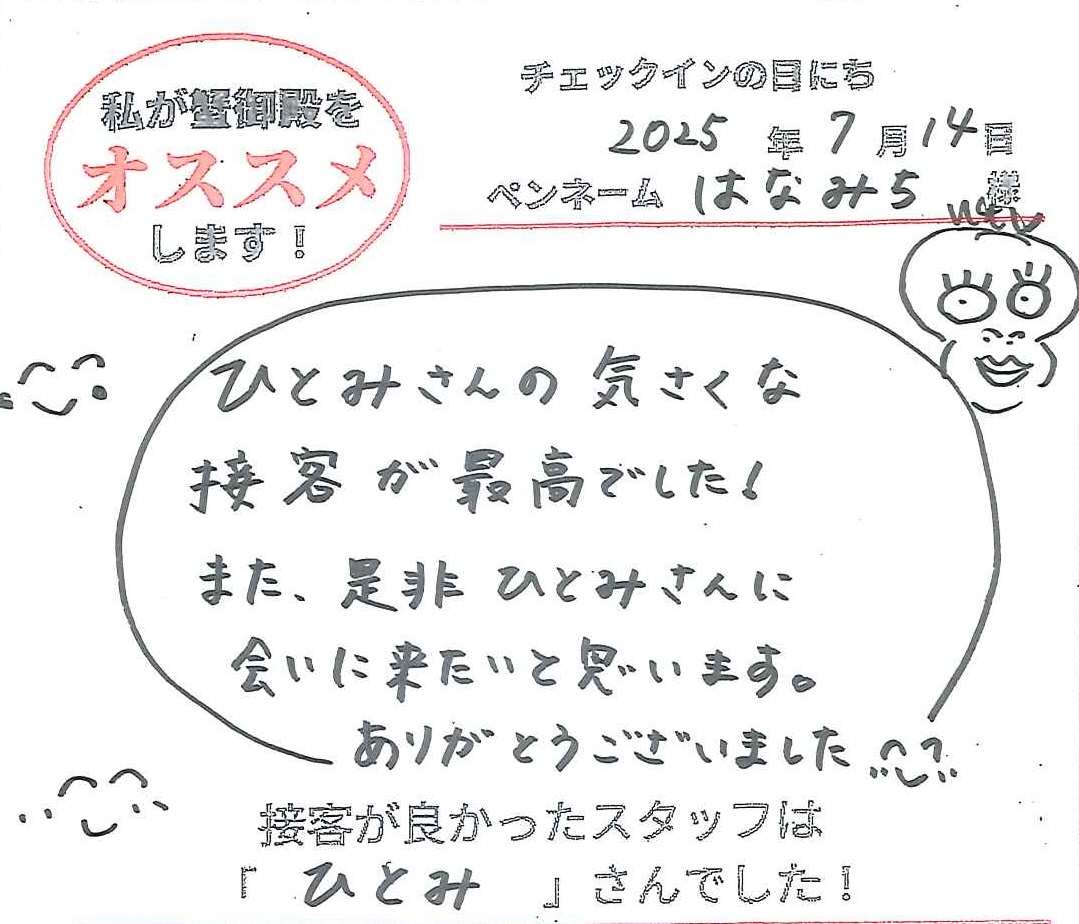 私が蟹御殿を
オススメ
します！
チェックインの日にち
2025 年 7 月 14 日
ペンネーム はなみち 様
ひとみさんの 気さくな
接客 が 最高でした!
また、是非 ひとみさんに
会いに来たいと思います。
ありがとうございました
接客が良かったスタッフは
「 ひとみ 」さんでした！